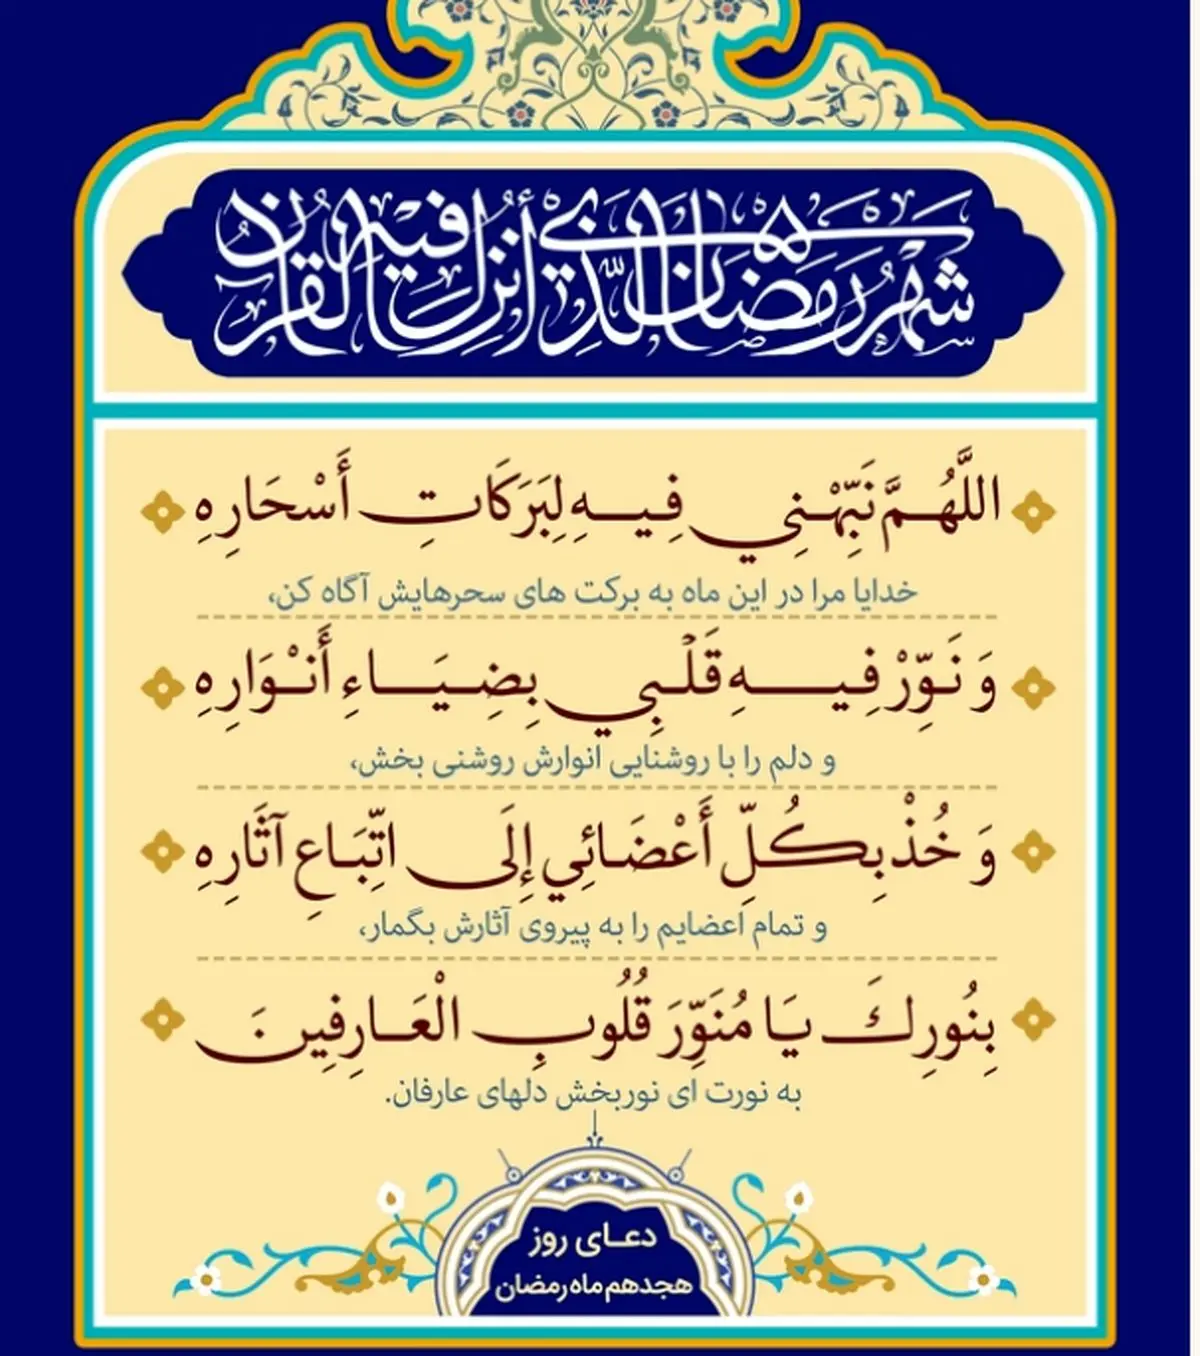 شَهْرُ رَمَضَانَ الَّذِي أُنْزِلَ فِيهِ الْقُرْآنُ
اللَّهُمَّ نَبِّهْنِي فِيهِ لِبَرَكَاتِ أَسْحَارِهِ
خدایا مرا در این ماه به برکت های سحرهایش آگاه کن،
وَ نَوِّرْ فِيهِ قَلْبِي بِضِيَاءِ أَنْوَارِهِ
و دلم را با روشنایی انوارش روشنی بخش،
وَ خُذْ بِكُلِّ أَعْضَائِي إِلَى اتِّبَاعِ آثَارِهِ
و تمام اعضایم را به پیروی آثارش بگمار،
بِنُورِكَ يَا مُنَوِّرَ قُلُوبِ الْعَارِفِينَ
به نورت ای نوربخش دلهای عارفان.
دعای روز
هجدهم ماه رمضان